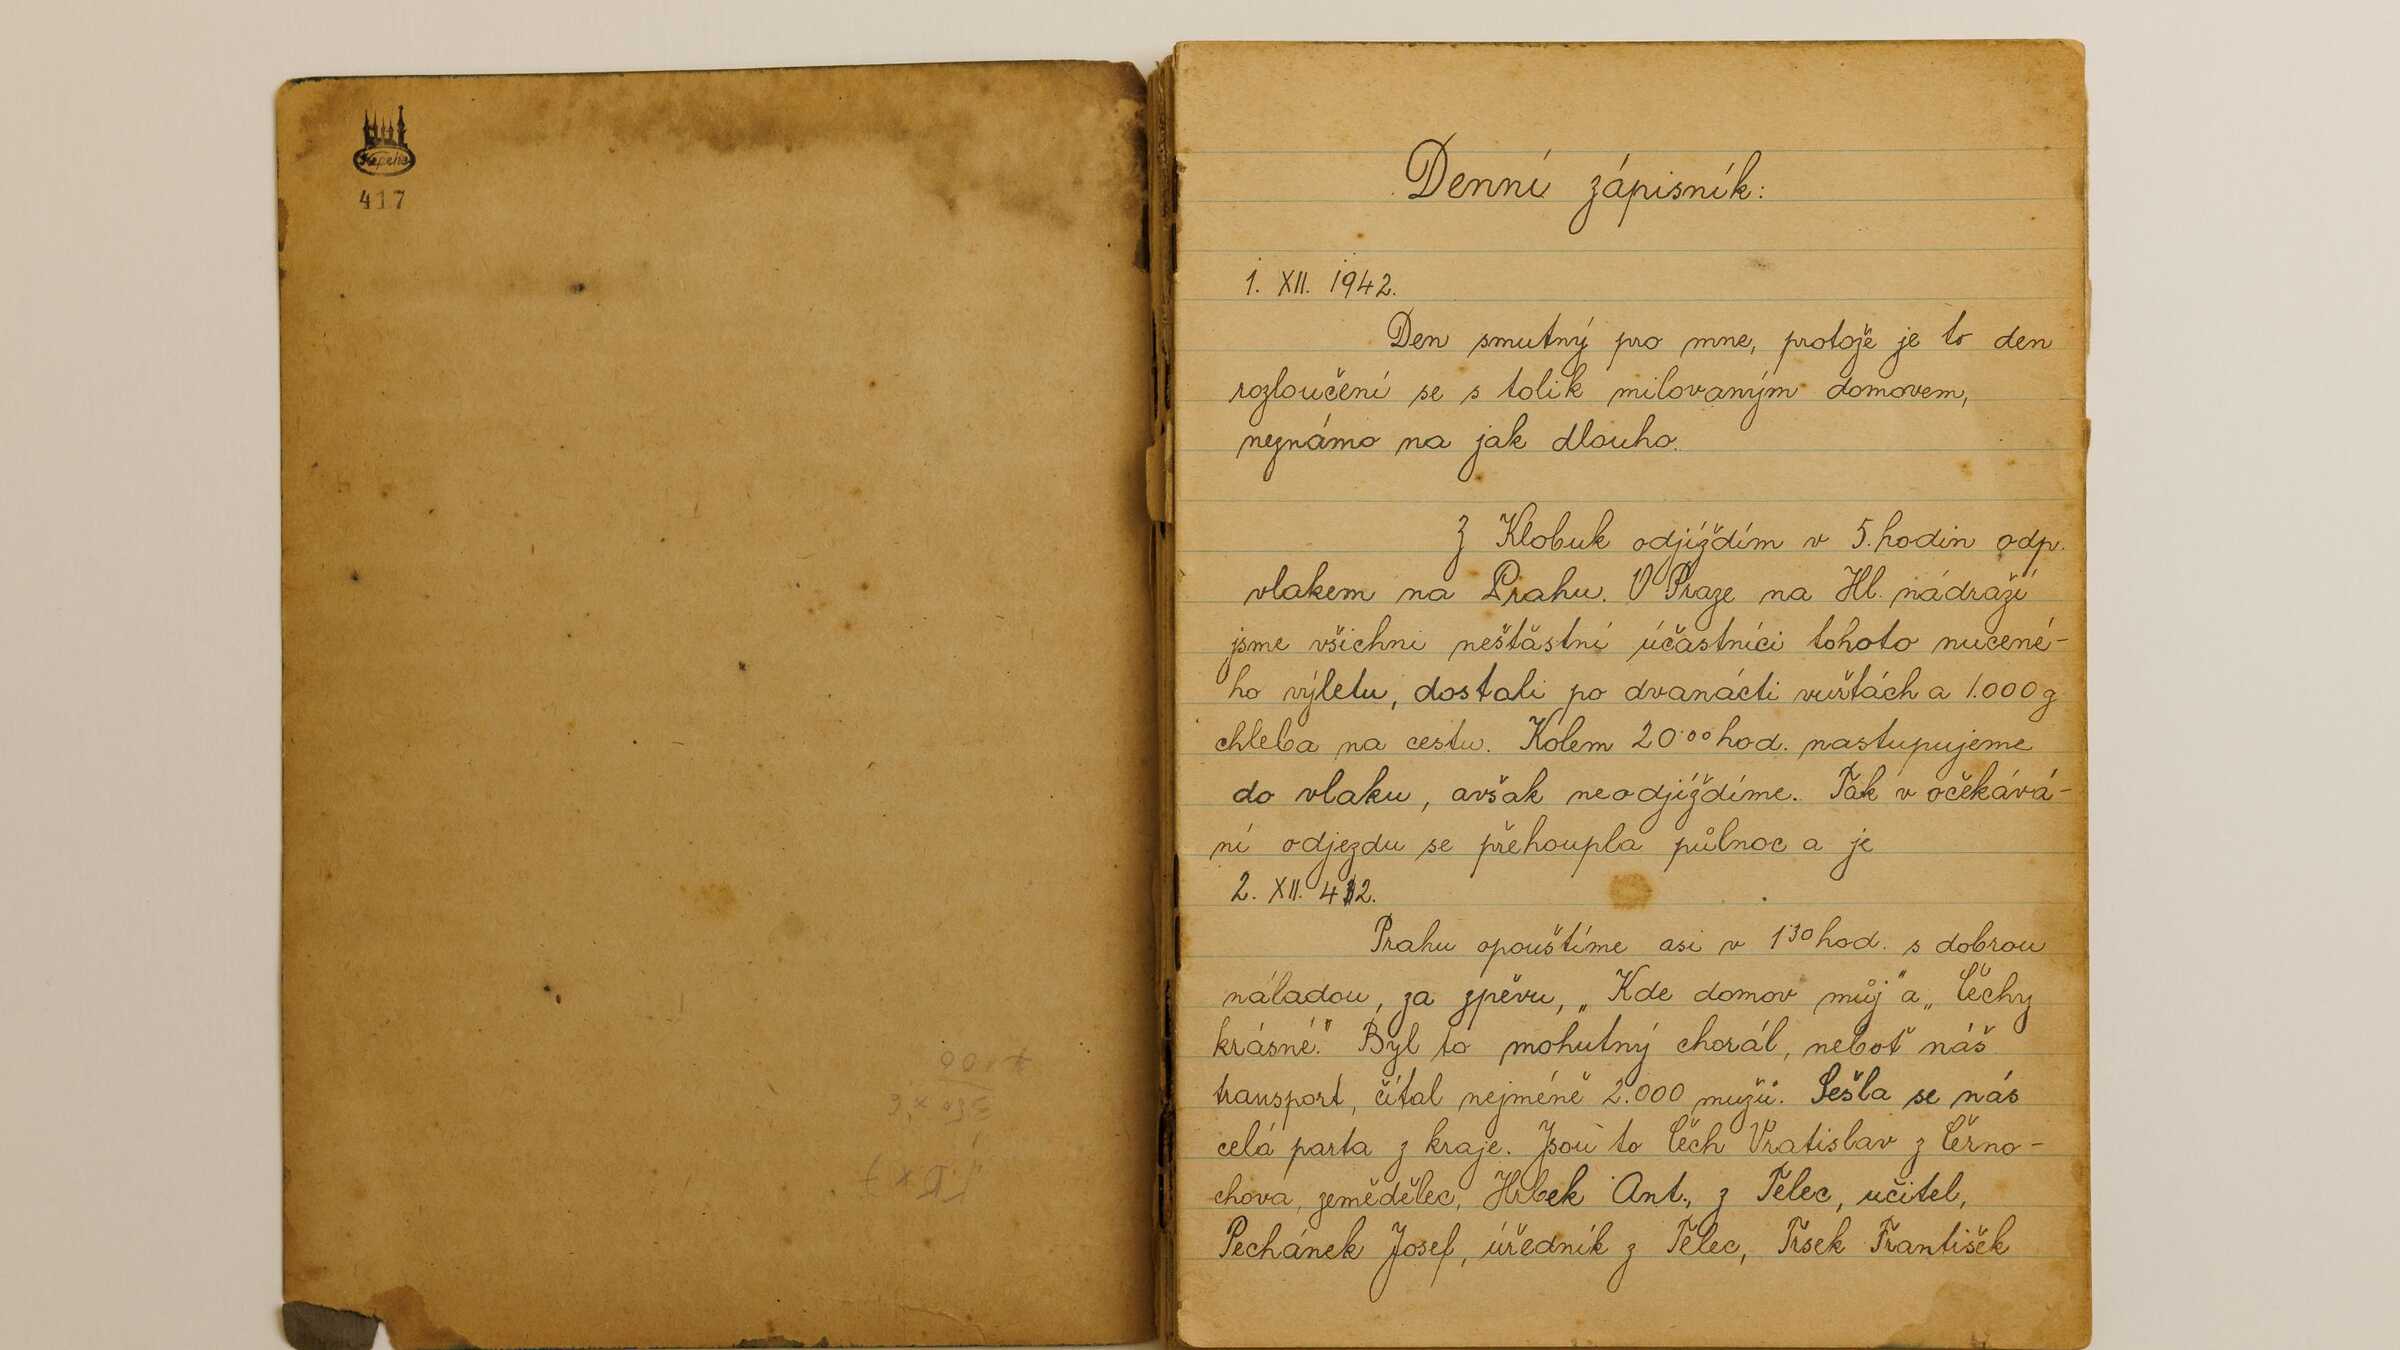 417
Denní zápisník:
1. XII. 1942.
Den smutný pro mne, protože je to den
rozloučení se s tolik milovaným domovem,
neznámo na jak dlouho.
Z Klobuk odjíždím v 5. hodin odp.
vlakem na Prahu. V Praze na Hl. nádraží
jsme všichni nešťastní účastníci tohoto nucené-
ho výletu, dostali po dvanácti vuřtách a 1.000 g
chleba na cestu. Kolem 20⁰⁰ hod. nastupujeme
do vlaku, avšak neodjíždíme. Tak v očekává-
ní odjezdu se přehoupla půlnoc a je
2. XII. 42.
Prahu opouštíme asi v 1³⁰ hod. s dobrou
náladou, za zpěvu, „Kde domov můj" a „Čechy
krásné." Byl to mohutný chorál, neboť náš
transport, čítal nejméně 2.000 mužů. Sešla se nás
celá parta z kraje. Jsou to Čech Vratislav z Černo-
chova, zemědělec, Hrbek Ant., z Telec, učitel,
Pechánek Josef, úředník z Telec, Tršek František